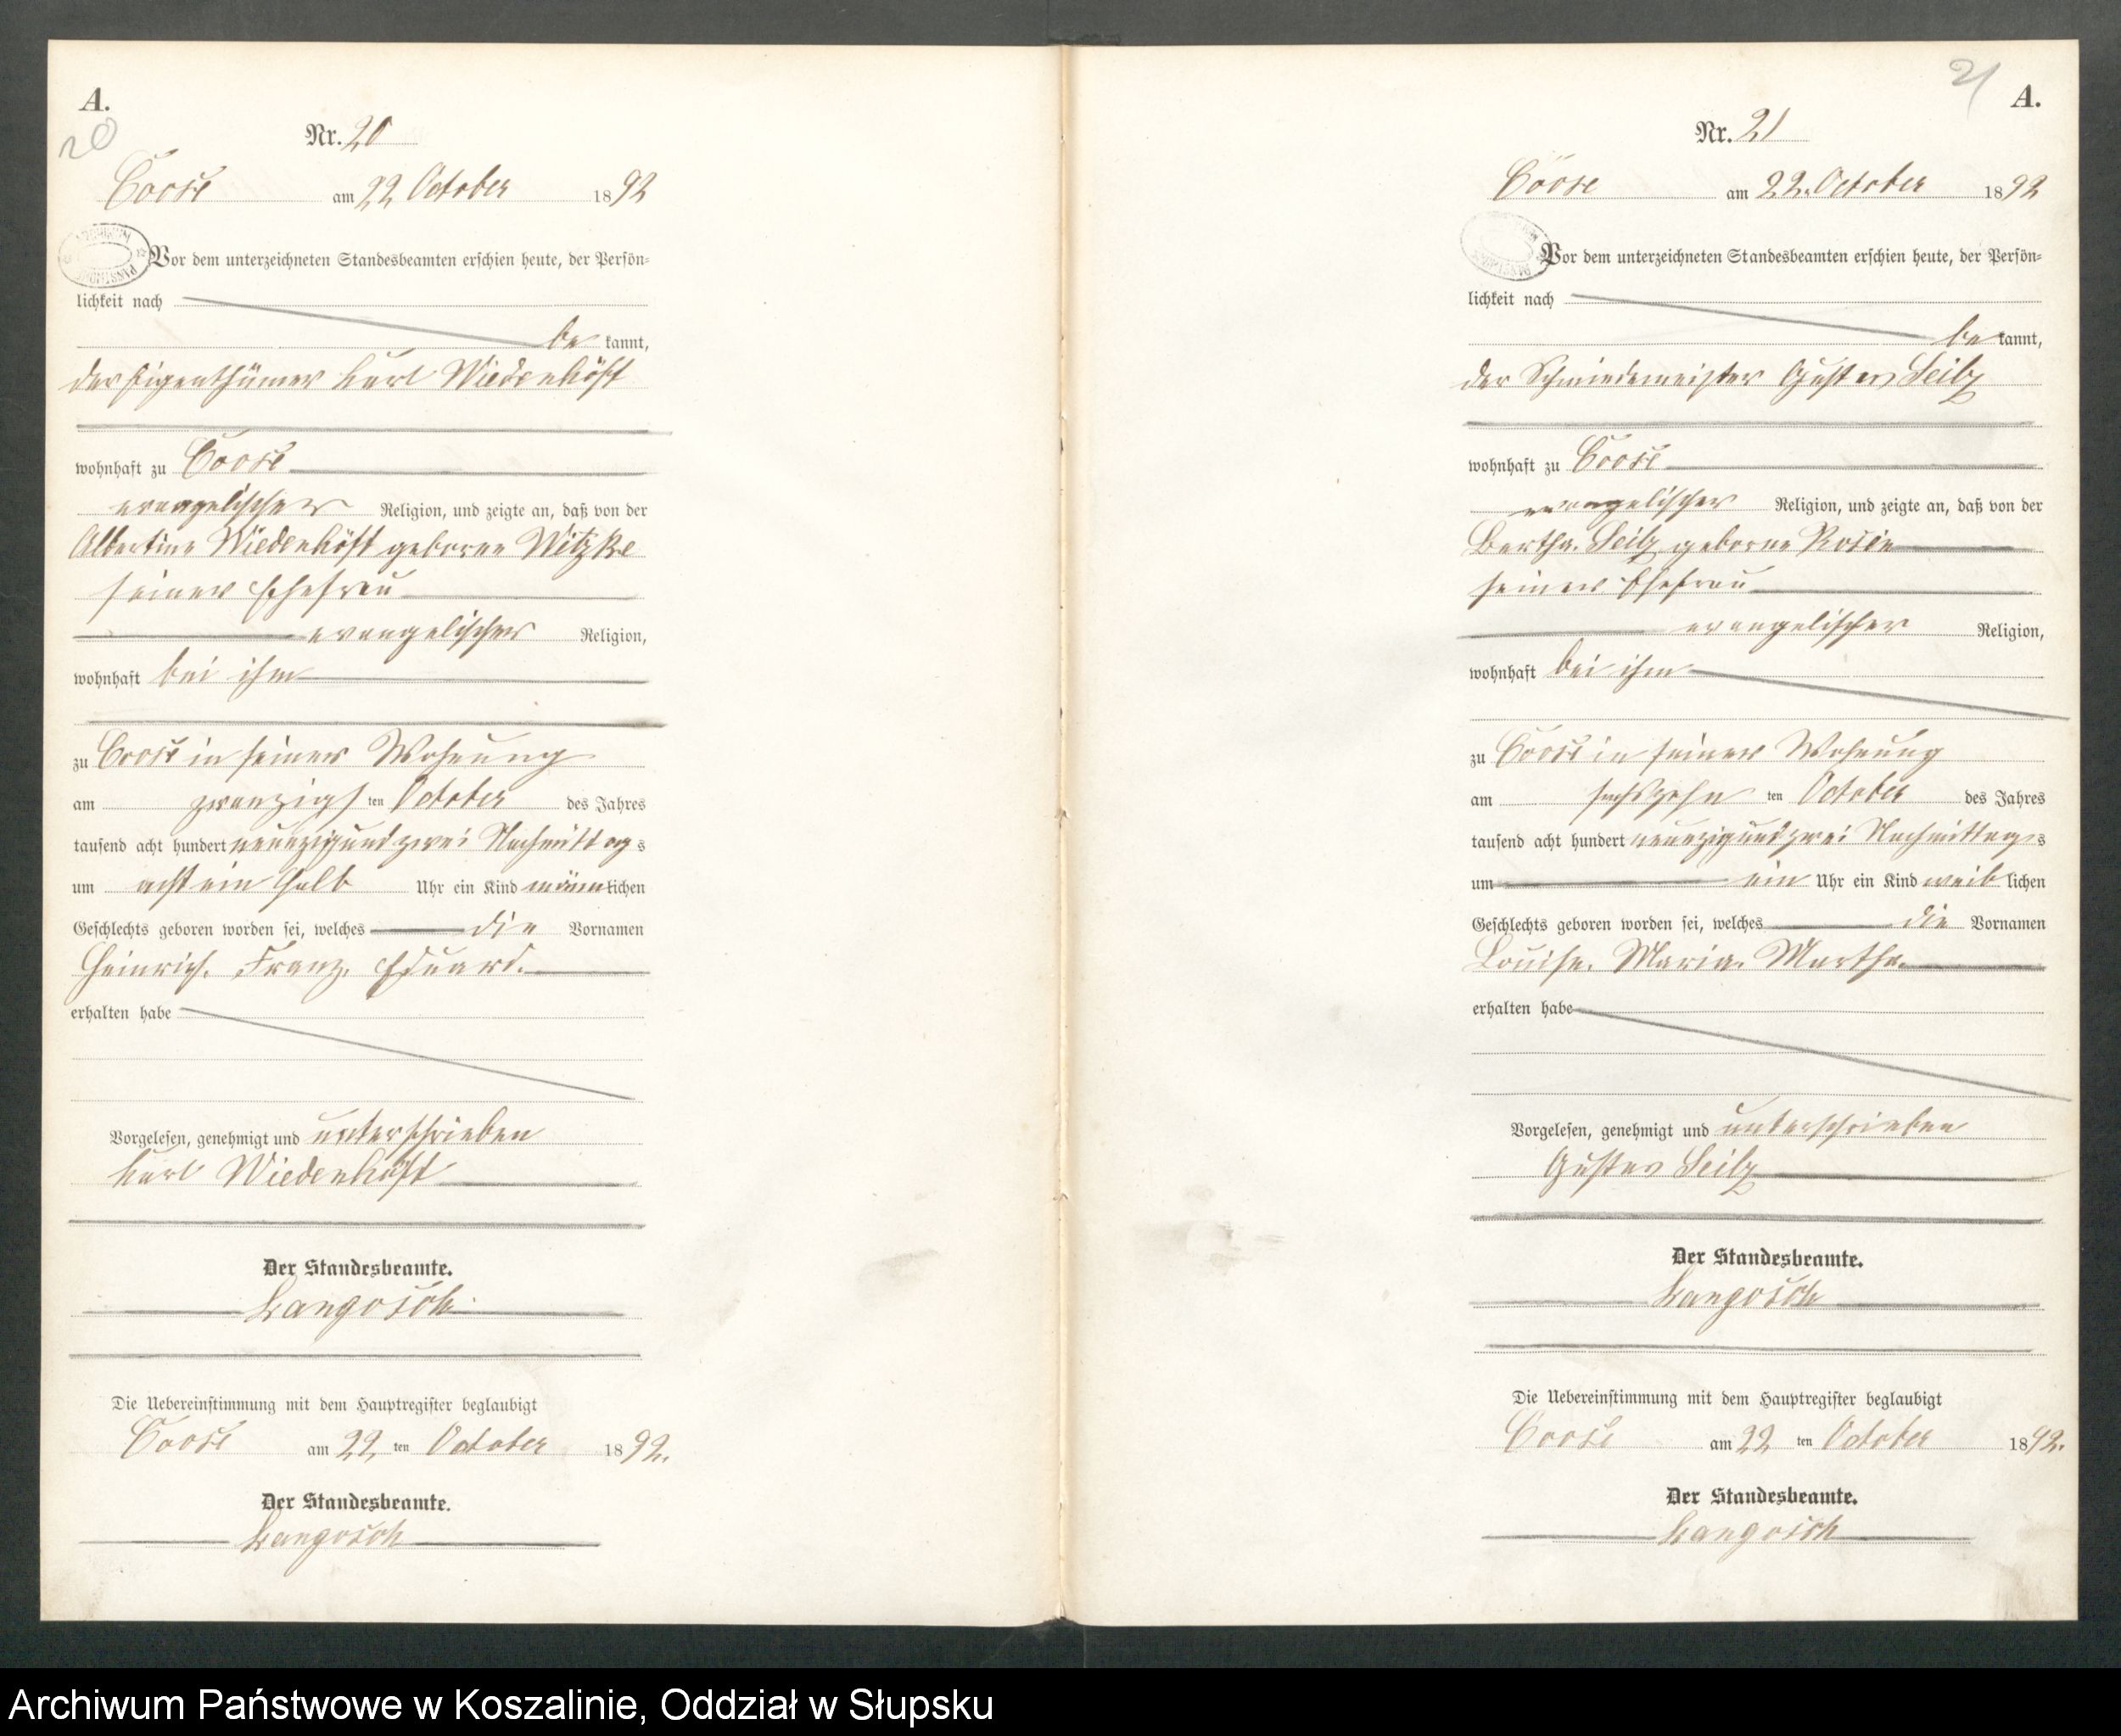 A.
20
Nr. 20
Coose am 22 October 1892
Vor dem unterzeichneten Standesbeamten erschien heute, der Persön=
lichkeit nach
be kannt,
der Eigenthümer Karl Wiedenhöft
wohnhaft zu Coose
evangelischer Religion, und zeigte an, daß von der
Albertine Wiedenhöft geborne Witzke
seiner Ehefrau
evangelischer Religion,
wohnhaft bei ihm
zu Coose in seiner Wohnung
am zwanzigs ten October des Jahres
tausend acht hundert neunzig und zwei Nachmittags
um acht ein halb Uhr ein Kind männlichen
Geschlechts geboren worden sei, welches die Vornamen
Heinrich. Franz. Eduard.
erhalten habe
Vorgelesen, genehmigt und unterschrieben
Karl Wiedenhöft
Der Standesbeamte.
Langosch
Die Uebereinstimmung mit dem Hauptregister beglaubigt
Coose am 22 ten October 1892.
Der Standesbeamte.
Langosch
21
A.
Nr. 21
Coose am 22. October 1892
Vor dem unterzeichneten Standesbeamten erschien heute, der Persön=
lichkeit nach
be kannt,
der Schmiedemeister Gustav Seilz
wohnhaft zu Coose
evangelischer Religion, und zeigte an, daß von der
Bertha. Seilz geborne Rosin
seiner Ehefrau
evangelischer Religion,
wohnhaft bei ihm
zu Coose in seiner Wohnung
am sechszehn ten October des Jahres
tausend acht hundert neunzig und zwei Nachmittags
um ein Uhr ein Kind weiblichen
Geschlechts geboren worden sei, welches die Vornamen
Louise. Maria. Martha.
erhalten habe
Vorgelesen, genehmigt und unterschrieben
Gustav Seilz
Der Standesbeamte.
Langosch
Die Uebereinstimmung mit dem Hauptregister beglaubigt
Coose am 22 ten October 1892.
Der Standesbeamte.
Langosch
Archiwum Państwowe w Koszalinie, Oddział w Słupsku